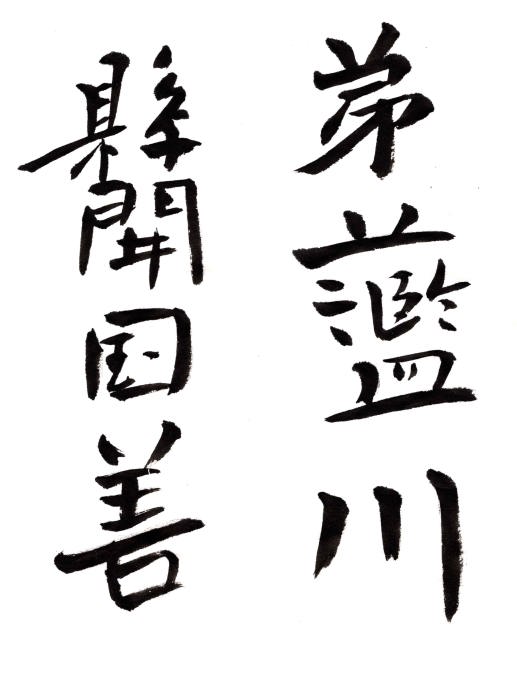 弟蘫川
縣開国善